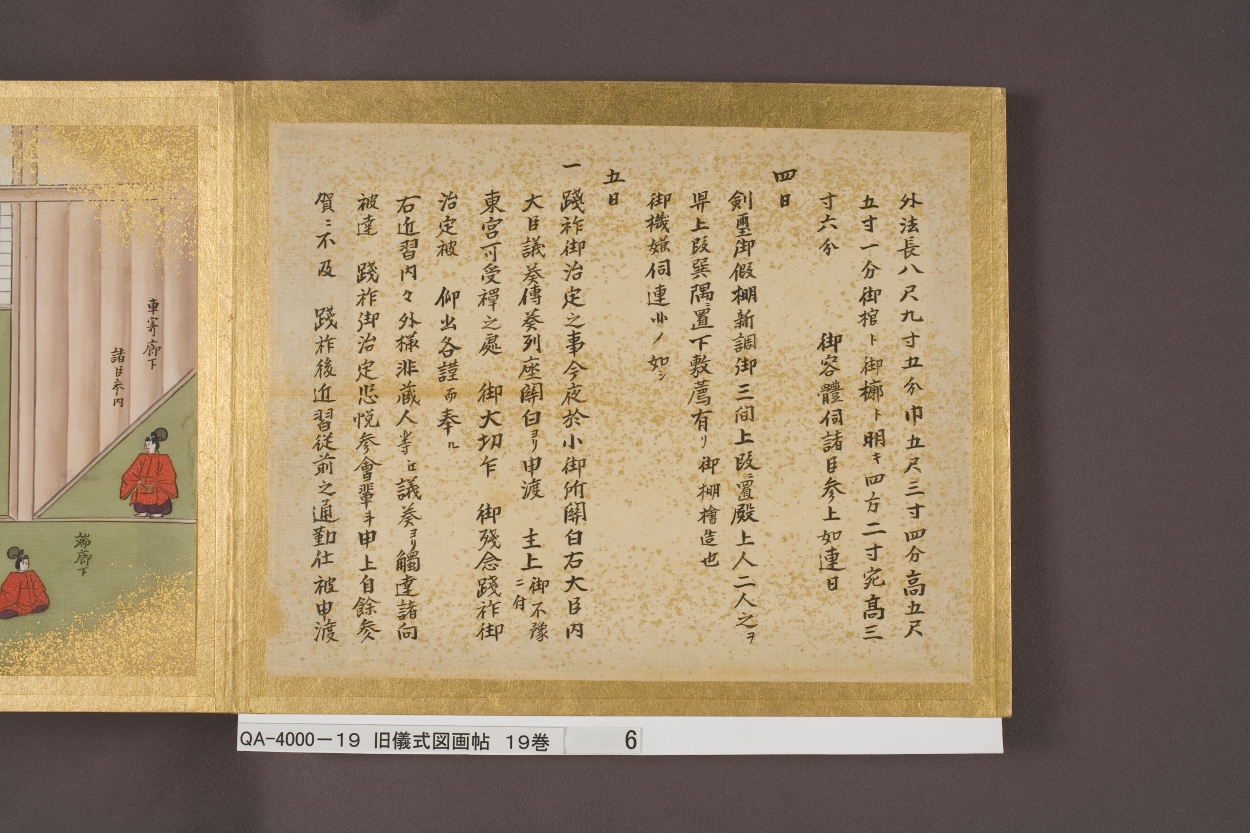 外法長八尺九寸五分巾五尺三寸四分高五尺
五寸一分御棺ト御槨ト明キ四方二寸宛高三
寸六分　御容體伺諸臣参上如連日
四日
剣璽御假棚新調御三間上段ニ置殿上人二人之ヲ
昇上段巽隅ニ置下敷薦有リ御棚檜造也
御機嫌伺連日ノ如シ
五日
一 踐祚御治定之事今夜於小御所関白右大臣内
大臣議奏傳奏列座関白ヨリ申渡　主上御不豫ニ付
東宮可受禪之處　御大切乍　御残念踐祚御
治定被　仰出各謹而奉ル
右近習内々外様非蔵人等江議奏ヨリ觸達諸向
被達　踐祚御治定恐悦参會輩ヲ申上自餘参
賀ニ不及　踐祚後近習従前之通勤仕被申渡
車寄廊下
諸臣参内
端廊下
QA-4000-19　旧儀式図画帖　19巻　6